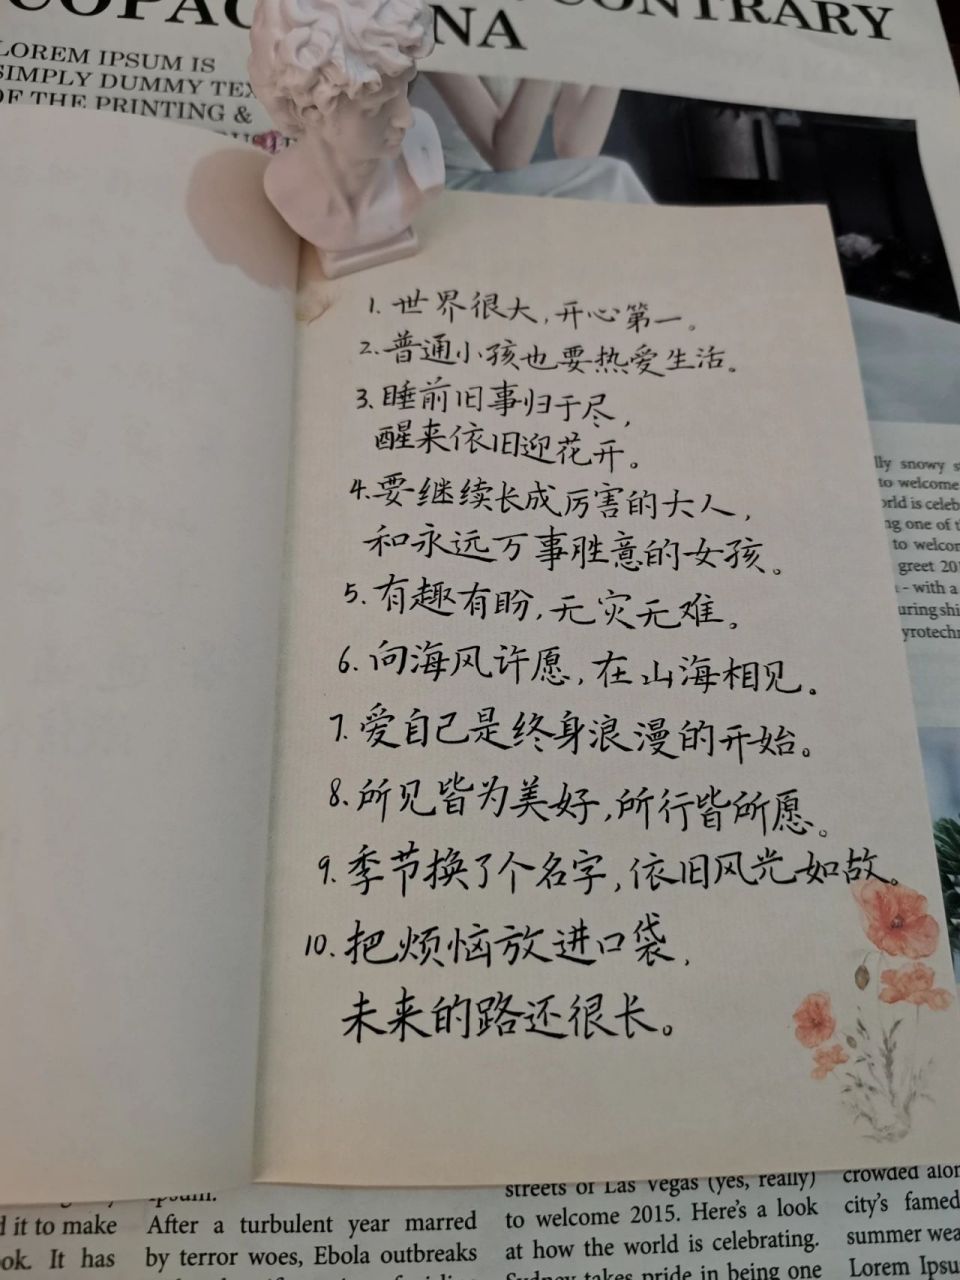 CONTRARY
NA
LOREM IPSUM IS
SIMPLY DUMMY
OF THE PRINTING &
1. 世界很大,开心第一。
2. 普通小孩也要热爱生活。
3. 睡前旧事归于尽,
醒来依旧迎花开。
4. 要继续长成厉害的大人,
和永远万事胜意的女孩。
5. 有趣有盼,无灾无难。
6. 向海风许愿,在山海相见。
7. 爱自己是终身浪漫的开始。
8. 所见皆为美好,所行皆所愿。
9. 季节换了个名字,依旧风光如故。
10. 把烦恼放进口袋,
未来的路还很长。
snowy
to welcome
is
one of
to welcom
greet
- with a
it to make
ok. It has
After a turbulent year marred
by terror woes, Ebola outbreaks
streets of Las Vegas (yes, really)
to welcome 2015. Here's a look
at how the world is celebrating.
Sydney takes pride in being one
crowded
city's famed
summer
Lorem